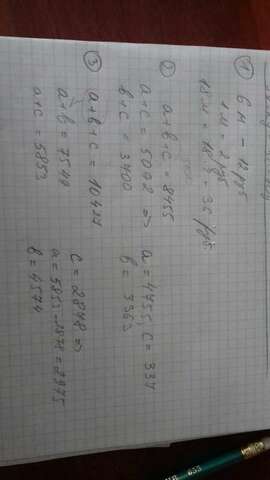 ① 6 м - 12 руб
1 м = 2 руб
18 м = 18·2 = 36 руб
② a+b+c = 8455
a+c = 5092 => a = 4755, c = 337
b+c = 3700 b = 3363
③ a+b+c = 10427
a+b = 7549 c = 2878 =>
a+c = 5853 a = 5853-2878 = 2975
b = 4574